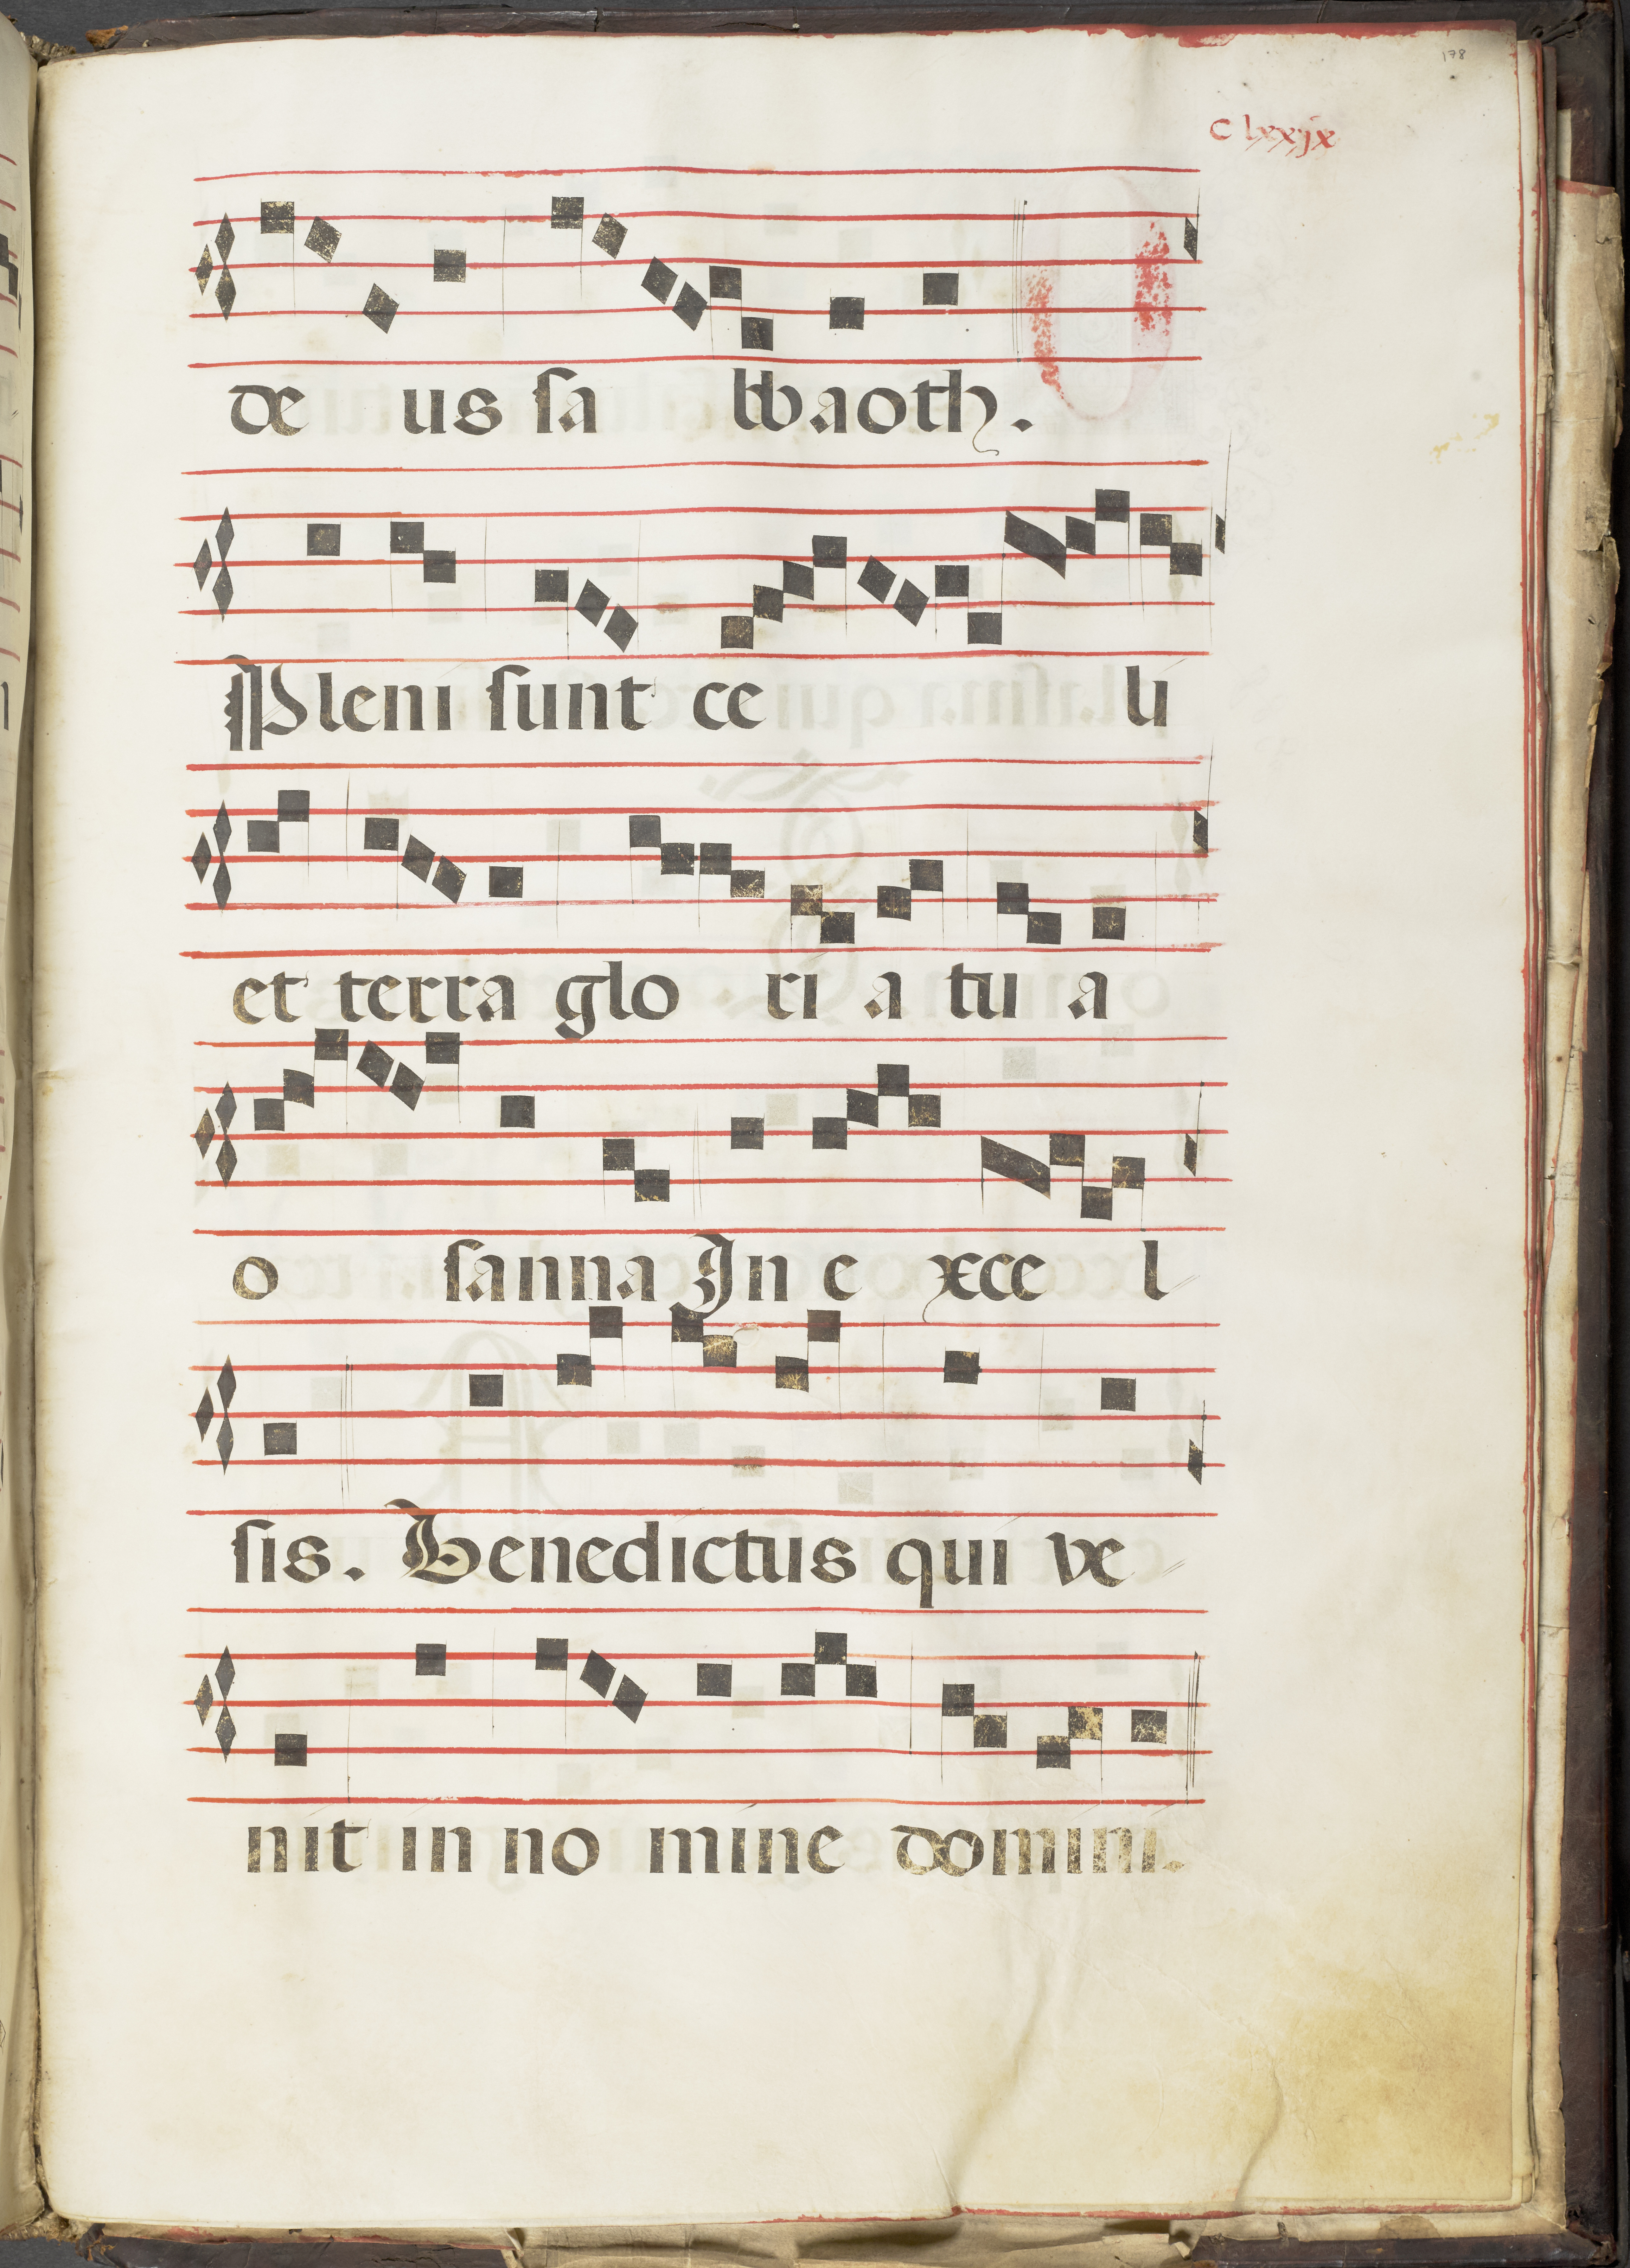 178
clxxjx
de us sa bbaoth.
Pleni sunt ce li
et terra glo ri a tu a
o sanna In e xce l
sis. Benedictus qui ve
nit in no mine domini.